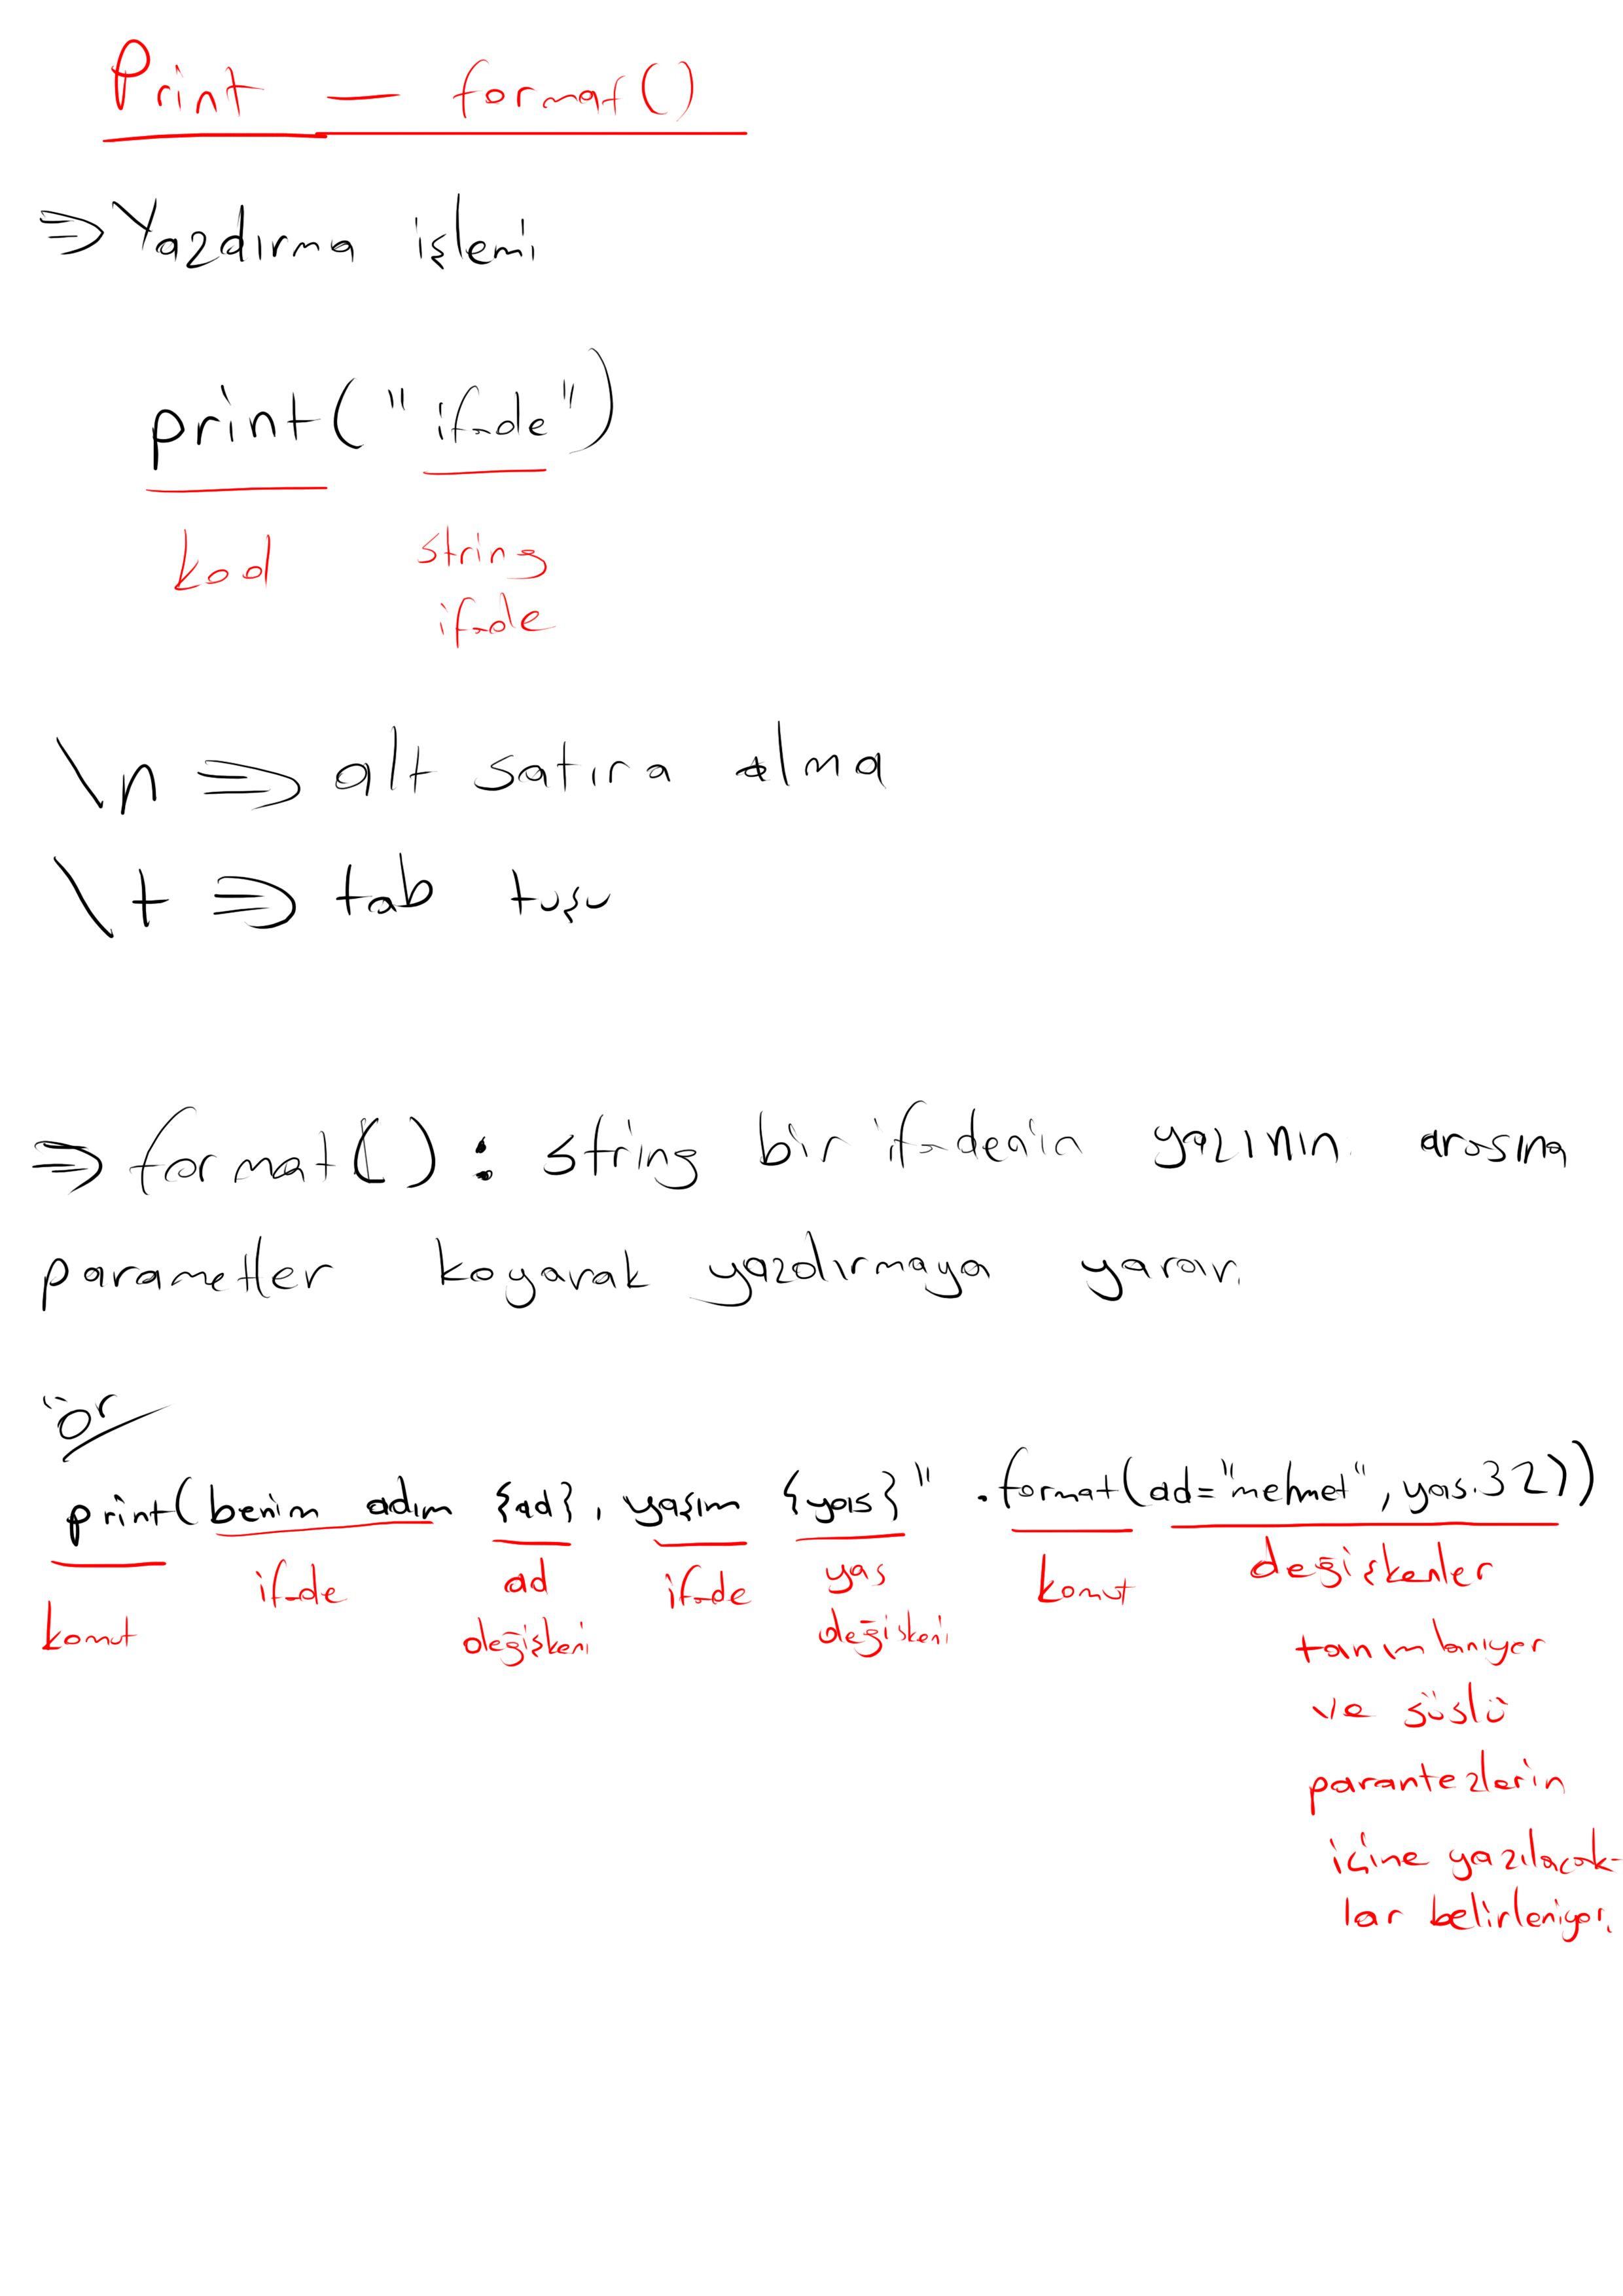 Print — format()
⇒ Yazdırma işlemi
print("ifade")
kod string
ifade
\n ⇒ alt satıra alma
\t ⇒ tab tuşu
⇒ format() : string bir ifadenin yazının arasına
parametler koyarak yazdırmaya yarar.
ör
print(benim adım {ad}, yaşım {yas}" .format(ad="mehmet", yas.32))
komut ifade ad değişkeni ifade yas değişkeni komut değişkenler
tanımlanıyor
ve süslü
parantezlerin
içine yazılacak-
lar belirleniyor.